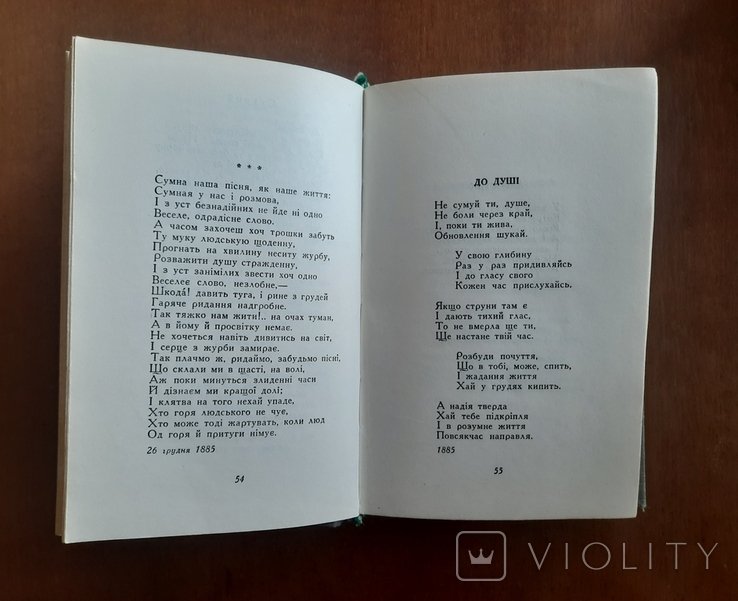 * * *
Сумна наша пісня, як наше життя:
Сумная у нас і розмова,
І з уст безнадійних не йде ні одно
Веселе, одрадісне слово.
А часом захочеш хоч трошки забуть
Ту муку людськую щоденну,
Прогнать на хвилину неситу журбу,
Розважити душу стражденну,
І з уст занімілих звести хоч одно
Веселеє слово, незлобне,—
Шкода! давить туга, і рине з грудей
Гаряче ридання надгробне.
Так тяжко нам жити!.. на очах туман,
А в йому й просвітку немає.
Не хочеться навіть дивитись на світ,
І серце з журби замирає.
Так плачмо ж, ридаймо, забудьмо пісні,
Що склали ми в щасті, на волі,
Аж поки минуться злиденні часи
Й дізнаєм ми кращої долі;
І клятва на того нехай упаде,
Хто горя людського не чує,
Хто може тоді жартувать, коли люд
Од горя й притуги німує.
26 грудня 1885
54
ДО ДУШІ
Не сумуй ти, душе,
Не боли через край,
І, поки ти жива,
Обновлення шукай.
У свою глибину
Раз у раз придивляйсь
І до гласу свого
Кожен час прислухайсь.
Якщо струни там є
І дають тихий глас,
То не вмерла ще ти,
Ще настане твій час.
Розбуди почуття,
Що в тобі, може, спить,
І жадання життя
Хай у грудях кипить.
А надія тверда
Хай тебе підкріпля
І в розумне життя
Повсякчас направля.
1885
55
VIOLITY